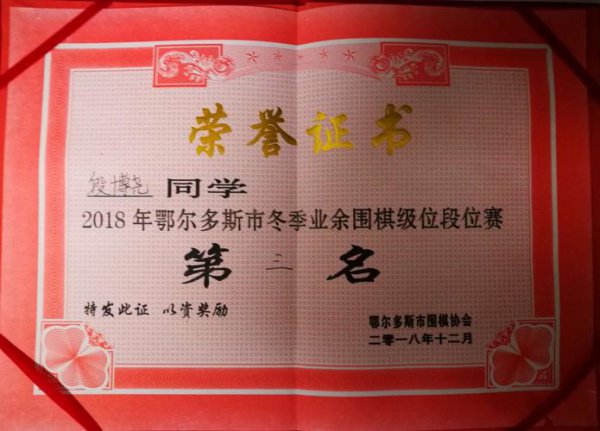 荣誉证书
段博尧 同学
2018年鄂尔多斯市冬季业余围棋级位段位赛
第 三 名
特发此证 以资奖励
鄂尔多斯市围棋协会
二零一八年十二月